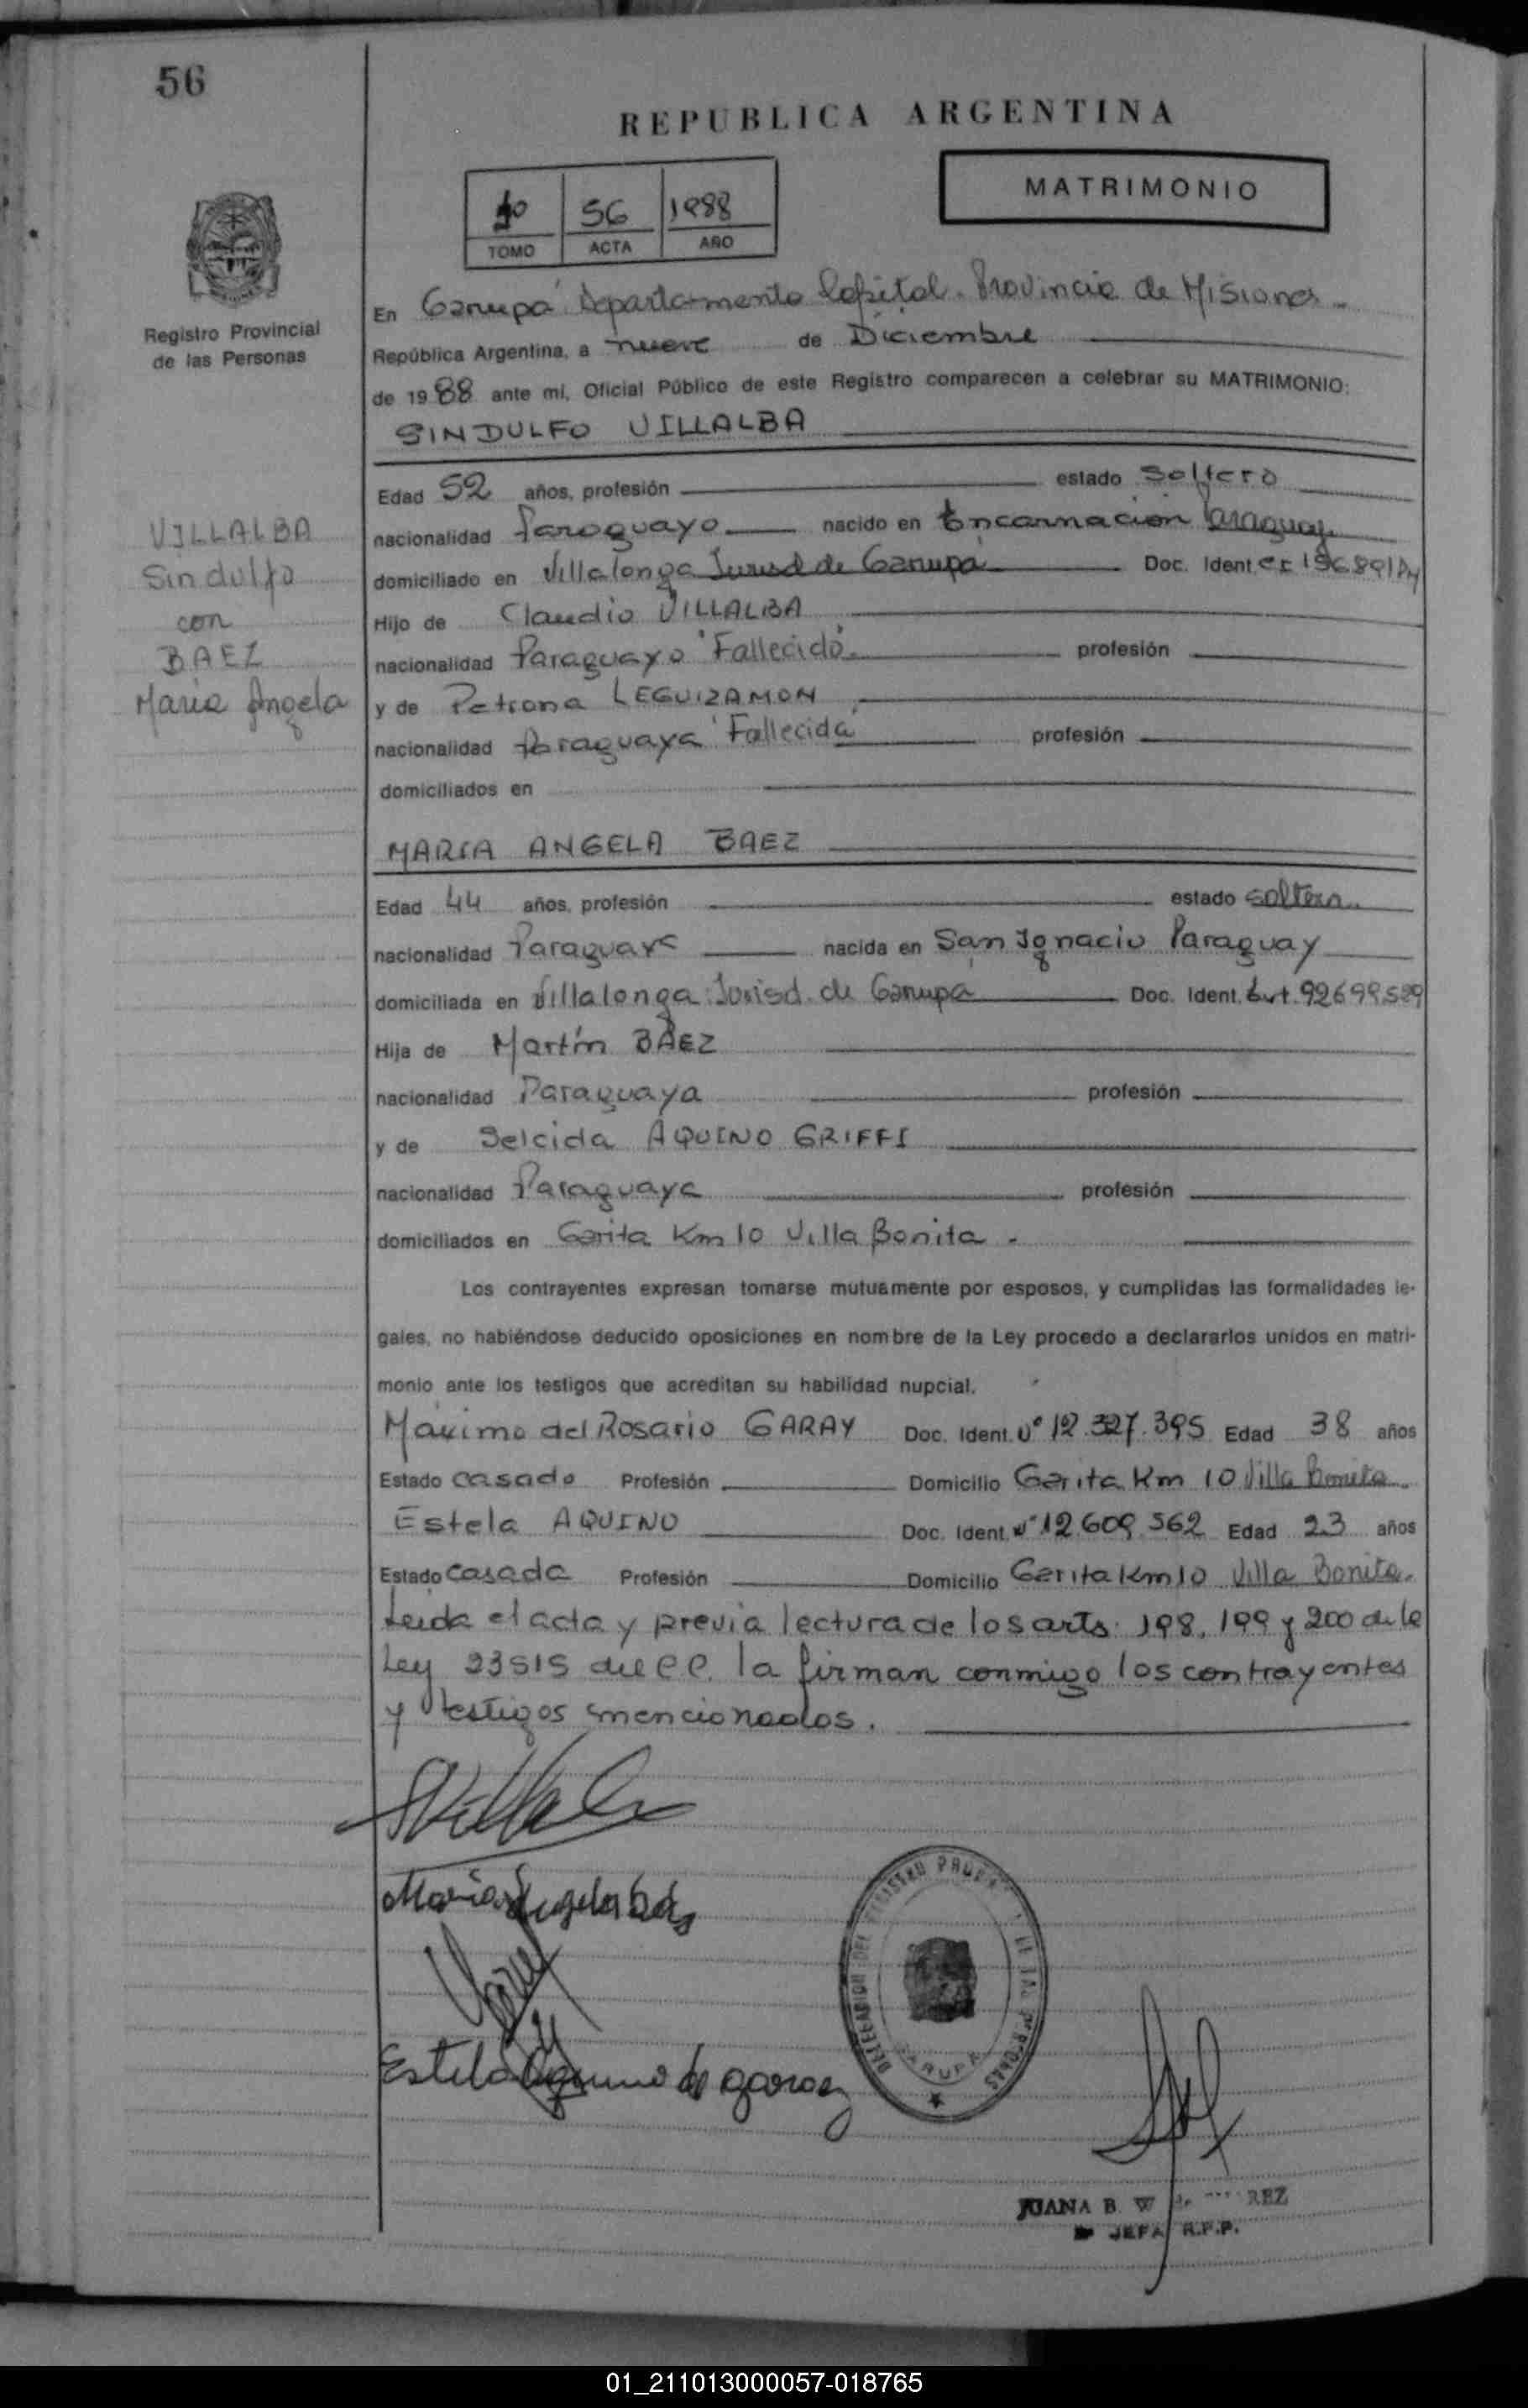 56
REPUBLICA ARGENTINA
MATRIMONIO
1º 56 1988
TOMO ACTA AÑO
Registro Provincial
de las Personas
En Garupá Departamento Capital. Provincia de Misiones.
República Argentina, a nueve de Diciembre
de 1988 ante mi, Oficial Público de este Registro comparecen a celebrar su MATRIMONIO:
SINDULFO VILLALBA
Edad 52 años, profesión estado Soltero
nacionalidad Paraguayo nacido en Encarnación Paraguay
domiciliado en Villalonga Jurisd de Garupá Doc. Ident
Hijo de Claudio VILLALBA
nacionalidad Paraguayo "Fallecido". profesión
y de Petrona LEGUIZAMON
nacionalidad Paraguaya "Fallecida" profesión
domiciliados en
VILLALBA
Sindulfo
con
BAEZ
María Angela
MARIA ANGELA BAEZ
Edad 44 años, profesión estado soltera.
nacionalidad Paraguaya nacida en San Ignacio Paraguay
domiciliada en Villalonga Jurisd. de Garupá Doc. Ident. 92699589
Hija de Martín BAEZ
nacionalidad Paraguaya profesión
y de Selcida AQUINO GRIFFI
nacionalidad Paraguaya profesión
domiciliados en Garita Km 10 Villa Bonita.
Los contrayentes expresan tomarse mutuamente por esposos, y cumplidas las formalidades le-
gales, no habiéndose deducido oposiciones en nombre de la Ley procedo a declararlos unidos en matri-
monio ante los testigos que acreditan su habilidad nupcial.
Máximo del Rosario GARAY Doc. Ident. Nº 12.327.395 Edad 38 años
Estado casado Profesión Domicilio Garita Km 10 Villa Bonita
Estela AQUINO Doc. Ident. Nº 12.609.562 Edad 23 años
Estado casada Profesión Domicilio Garita Km 10 Villa Bonita.
Leída el acta y previa lectura de los arts. 198, 199 y 200 de la
Ley 23515 del C.C. la firman conmigo los contrayentes
y testigos mencionados.
María Angela Baez
Estela Aquino de garay
DELEGACION DEL REGISTRO DE LAS PERSONAS
GARUPA
JUANA B. W REZ
JEFA R.P.P.
01_211013000057-018765